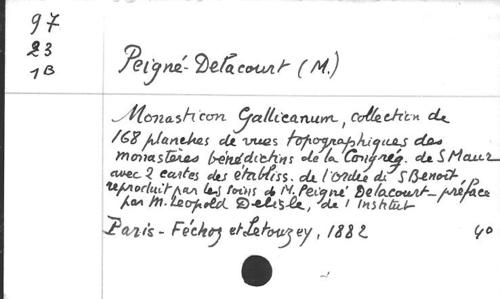 97
23
1B
Peigné-Delacourt (M.)
Monasticon Gallicanum, collection de
168 planches de vues topographiques des
monastères bénédictins de la Congrég. de S Maur
avec 2 cartes des établiss. de l'ordre de S Benoit,
reproduit par les soins de M. Peigné Delacourt - préface
par M. Leopold Delisle, de l'Institut
Paris - Féchoz et Letouzey, 1882 40